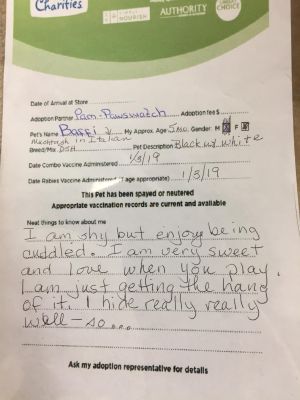 Charities
NOURISH
AUTHORITY
CHOICE
Date of Arrival at Store
Adoption Partner Pam-Pawswatch Adoption fee $
Pet's Name Baffi My Approx. Age 5mo Gender: M F
in Italian
Breed/Mix DSH Pet Description Black w/ white
Date Combo Vaccine Administered 1/3/19
Date Rabies Vaccine Administered (if age appropriate) 1/3/19
This Pet has been spayed or neutered
Appropriate vaccination records are current and available
Neat things to know about me
I am shy but enjoy being
cuddled. I am very sweet
and love when you play.
I am just getting the hang
of it. I hide really really
well - so...
Ask my adoption representative for details